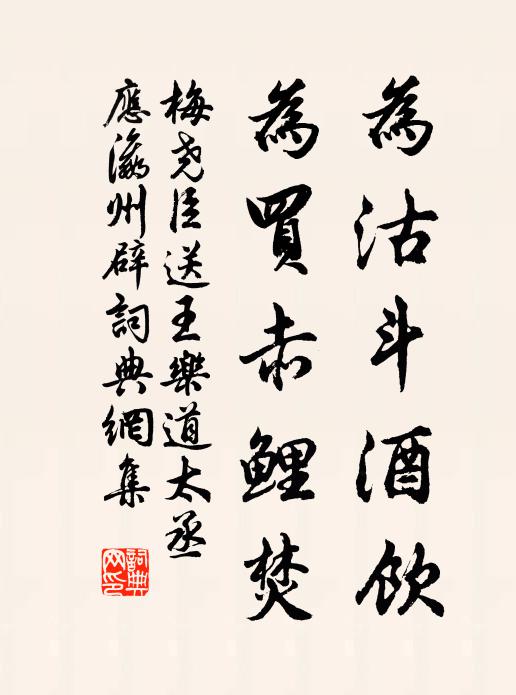 為沽斗酒飲
為買赤鯉焚
梅堯臣送王樂道太丞
應瀛州辟詞典網集
詞典網印